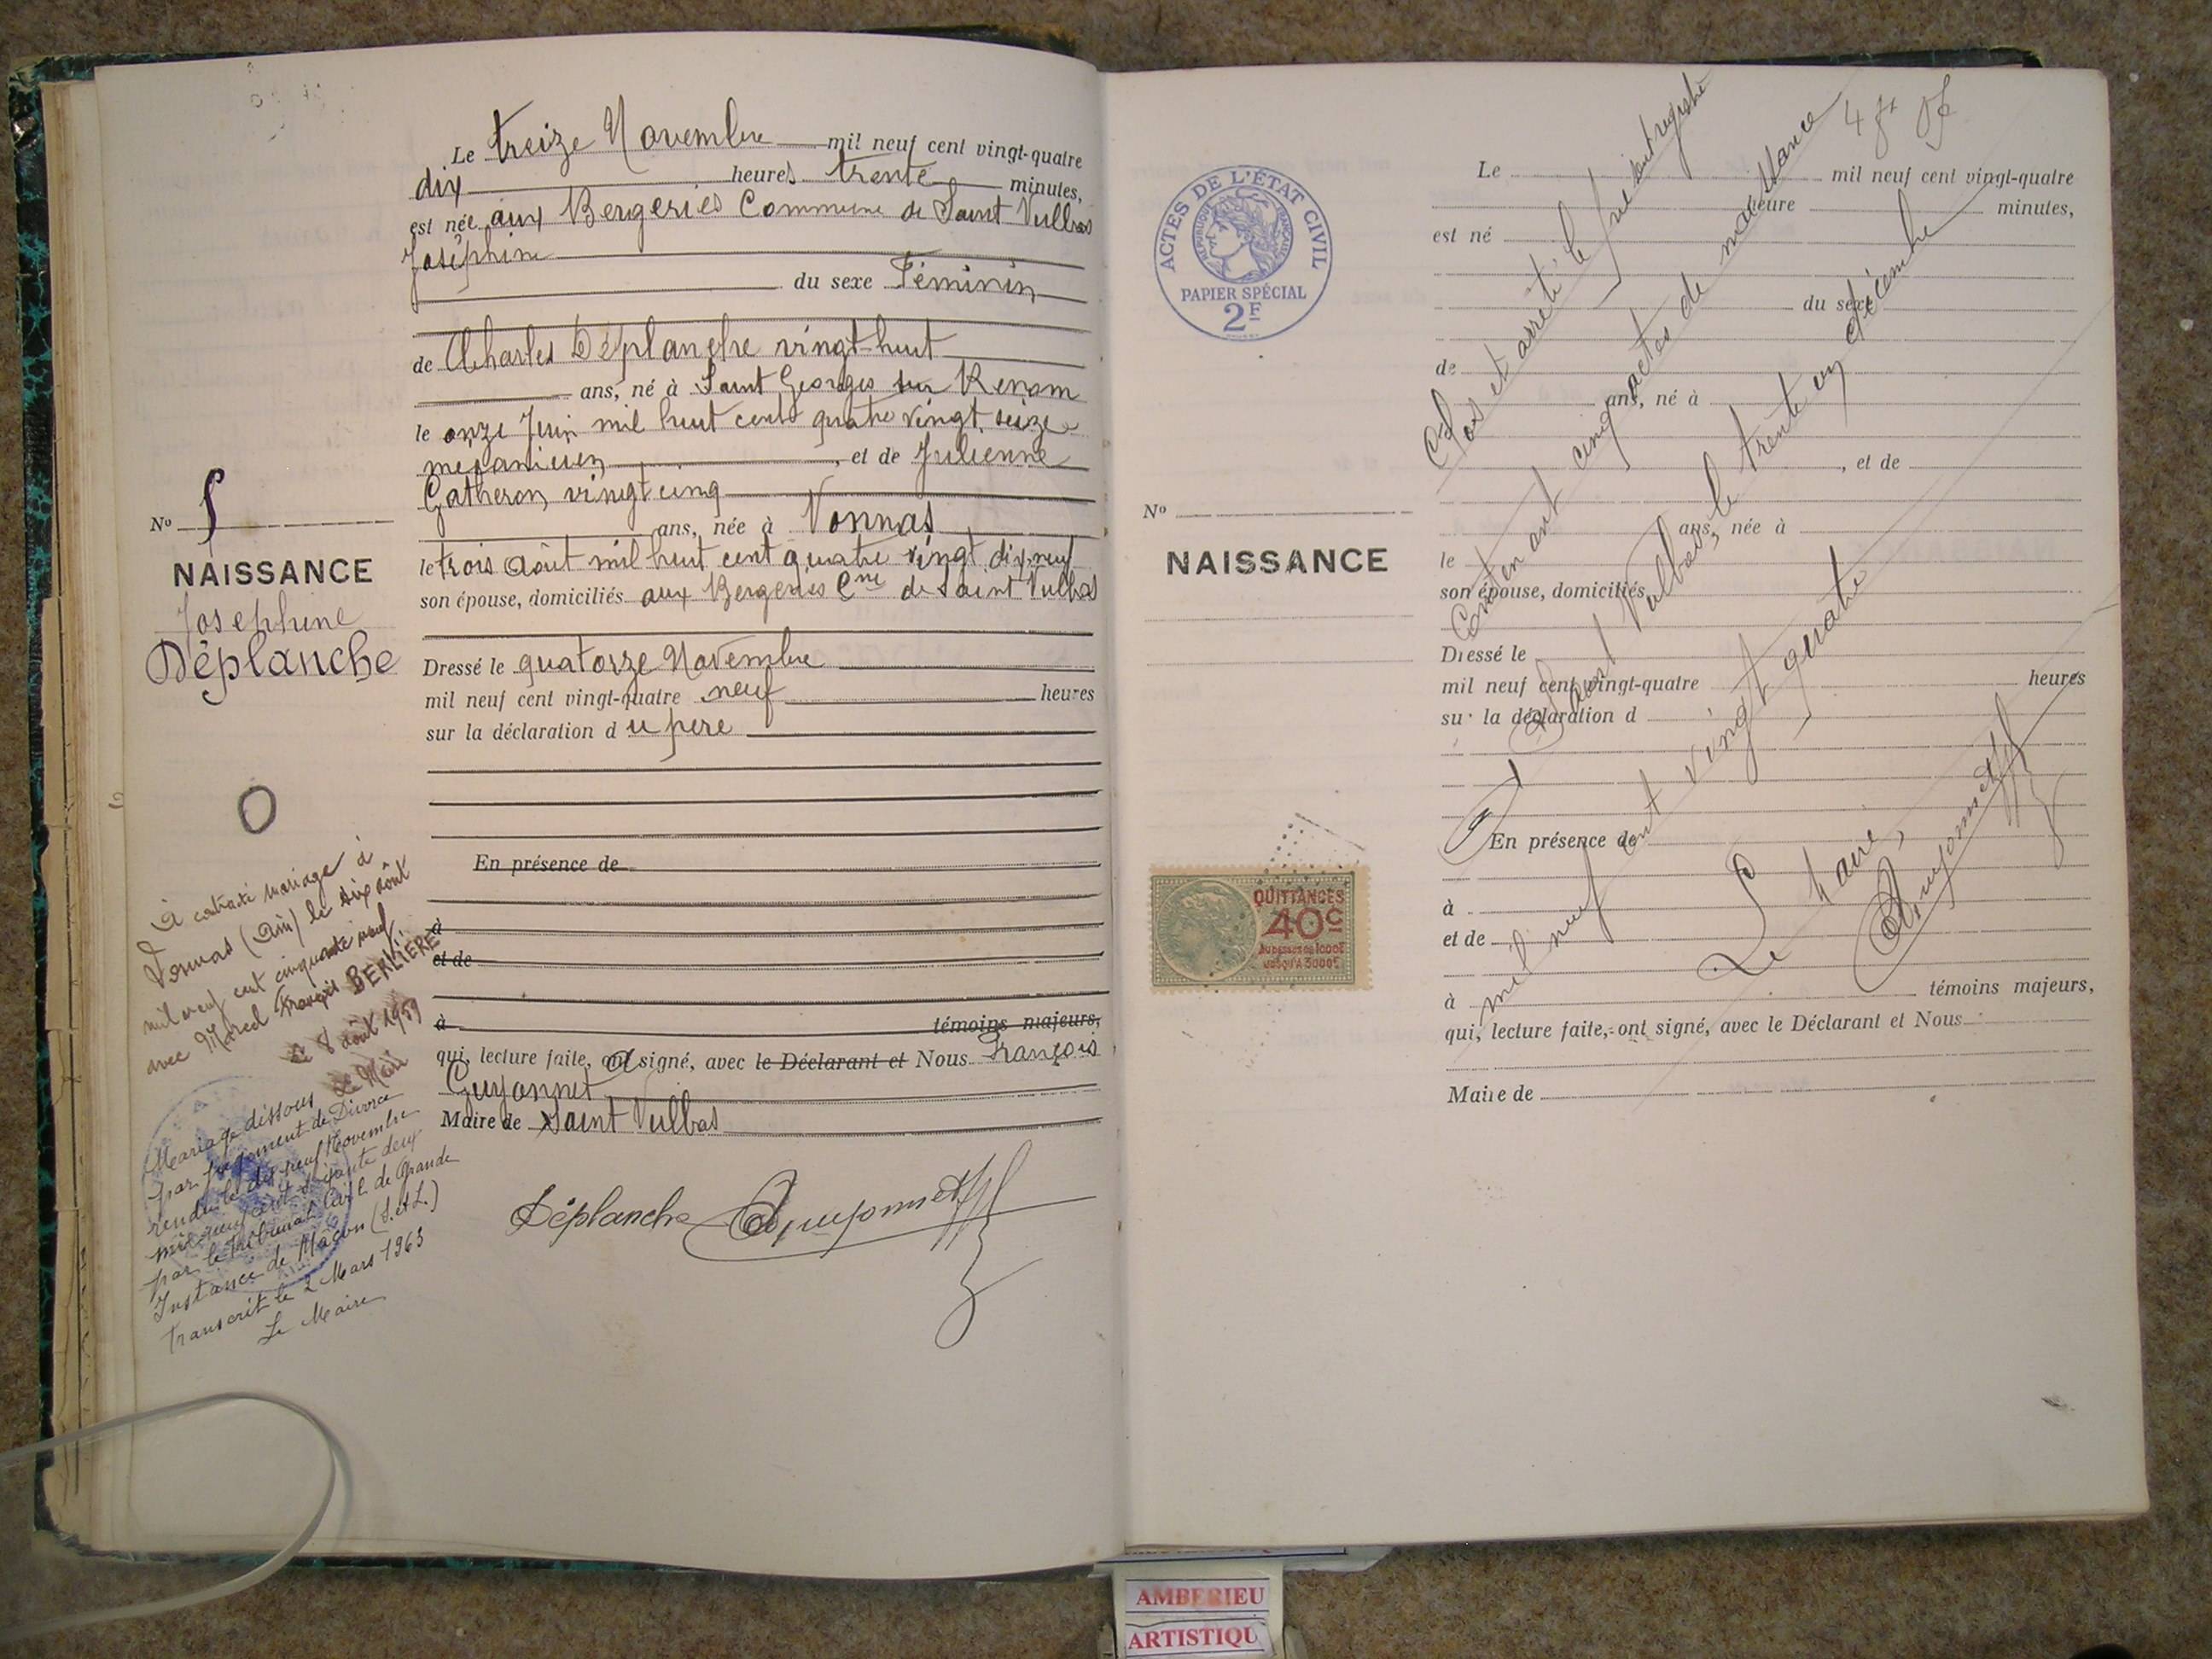 Le treize Novembre mil neuf cent vingt-quatre
dix heures trente minutes,
est née aux Bergeries Commune de Saint Vulbas
Joséphine
du sexe Féminin
de Charles Déplanche vingt-huit
ans, né à Saint Georges sur Renom
le onze Juin mil huit cent quatre vingt seize
mécanicien, et de Julienne
Gatheron vingt cinq
ans, née à Vonnas
le trois août mil huit cent quatre vingt dix neuf
son épouse, domiciliés aux Bergeries Cne de Saint Vulbas
Dressé le quatorze Novembre
mil neuf cent vingt-quatre neuf heures
sur la déclaration du père
En présence de
à
et de
à témoins majeurs,
qui, lecture faite, a signé, avec le Déclarant et Nous François
Guyonnet
Maire de Saint Vulbas
Déplanche Guyonnet
No 5
NAISSANCE
Joséphine
Déplanche
A contracté mariage à
Vonnas (Ain) le six août
mil neuf cent cinquante neuf
avec Marcel François BERLIERE
Le 8 août 1959
Le Maire
Mariage dissous
par jugement de Divorce
rendu le dix neuf Novembre
mil neuf cent soixante deux
par le tribunal de Grande
Instance de Mâcon (S.et L.)
Transcrit le 2 Mars 1963
Le Maire
ACTES DE L'ÉTAT CIVIL
RÉPUBLIQUE FRANÇAISE
PAPIER SPÉCIAL
2F
No
NAISSANCE
QUITTANCES
40c
AU DESSUS DE 1000F
JUSQU'A 3000F
Le mil neuf cent vingt-quatre
heure minutes,
est né
du sexe
de
ans, né à
, et de
ans, née à
le
son épouse, domiciliés
Dressé le
mil neuf cent vingt-quatre heures
sur la déclaration d
En présence de
à
et de
à témoins majeurs,
qui, lecture faite, ont signé, avec le Déclarant et Nous
Maire de
Clos et arrêté le présent registre
Contenant cinq actes de naissance
A Saint Vulbas, le trente un décembre
mil neuf cent vingt quatre
Le Maire,
Guyonnet
AMBERIEU
ARTISTIQU